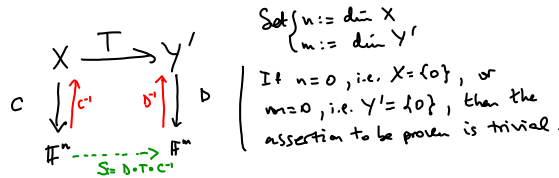 X T Y'
C C⁻¹ D⁻¹ D
𝔽ⁿ 𝔽ᵐ
S:= D∘T∘C⁻¹
Set { n := dim X
m := dim Y'
If n=0, i.e. X={0}, or
m=0, i.e. Y'={0}, then the
assertion to be proven is trivial.